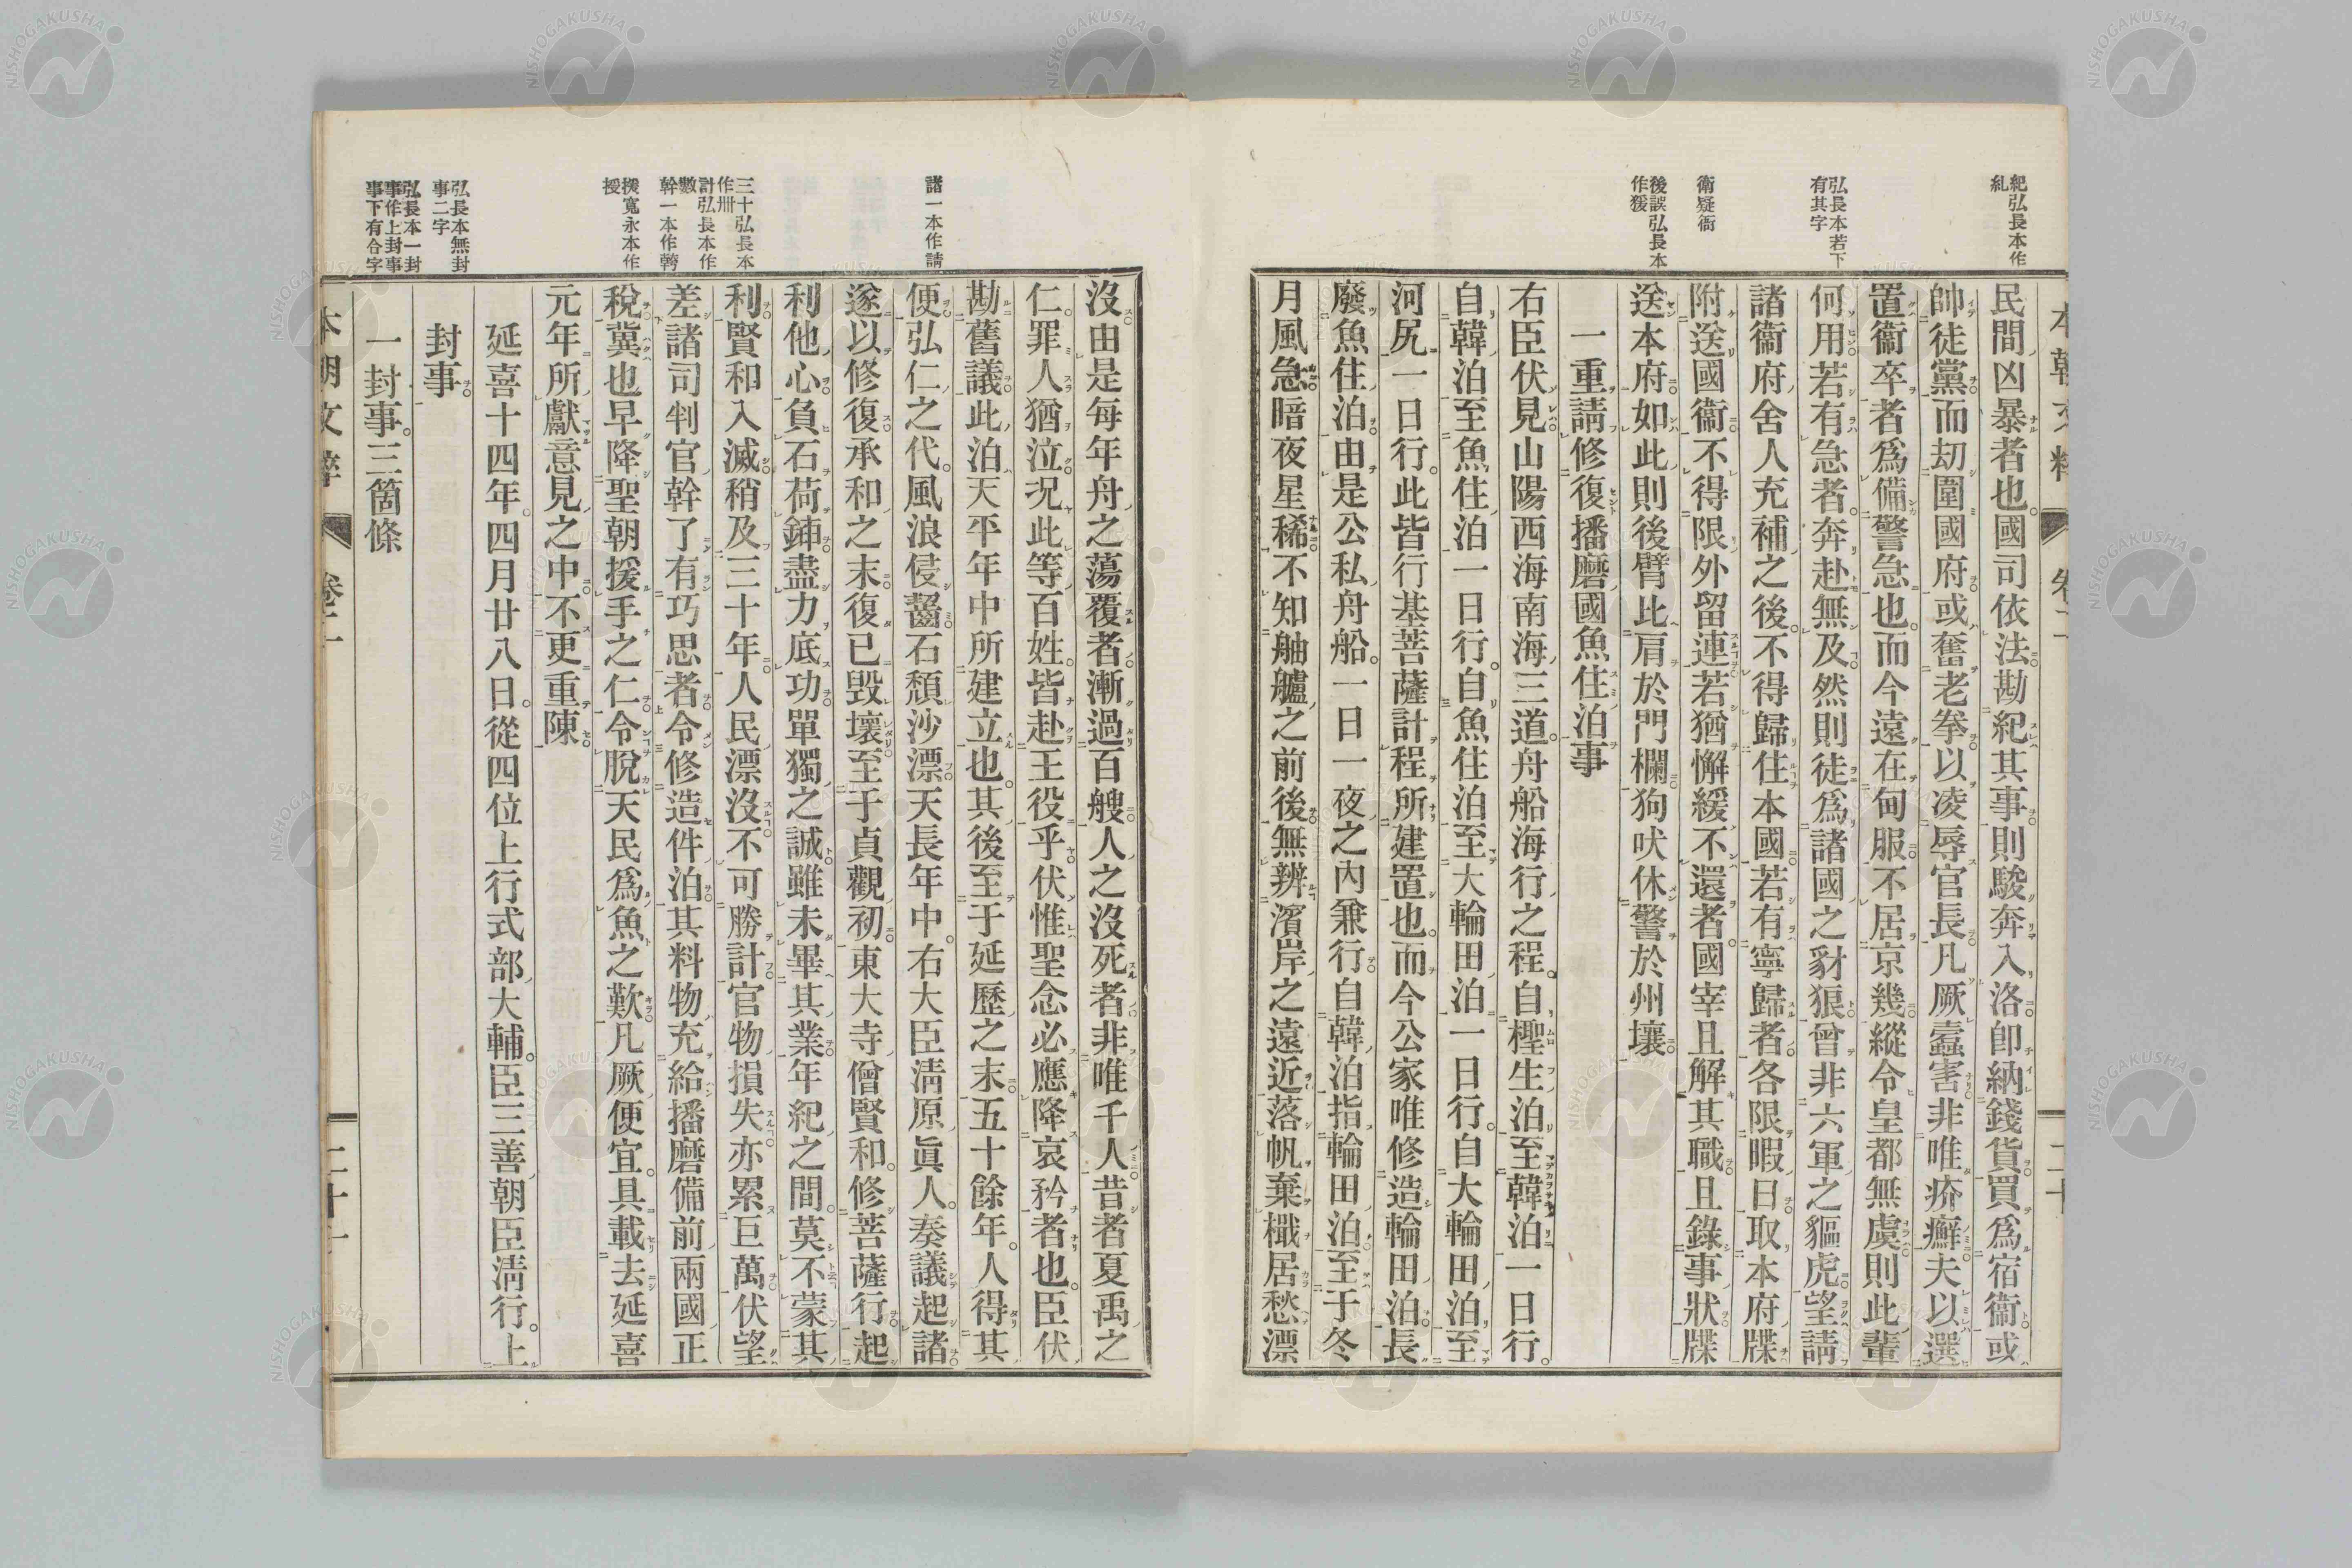 本朝文粹 卷二 二十
紀弘長本作
糺
弘長本若下
有其字
衛疑衙
後誤弘長本
作猨
民間凶暴者也。國司依法勘紀其事則駿奔入洛卽納錢貨買爲宿衞或
帥徒黨而刧圍國府或奮老拳以凌辱官長凡厥蠹害非唯疥癬夫以選
置衞卒者爲備警急也。而今遠在甸服不居京幾縱令皇都無虞則此輩
何用若有急者。奔赴無及。然則徒爲諸國之豺狼曾非六軍之貙虎望請
諸衞府舍人充補之後。不得歸住本國若有寧歸者各限暇日取本府牒
附送國衞不得限外留連若猶懈緩不還者。國宰且解其職且錄事狀牒
送本府如此則後臂比肩於門欄狗吠休警於州壤
一重請修復播磨國魚住泊事
右臣伏見山陽西海南海三道。舟船海行之程。自檉生泊至韓泊一日行。
自韓泊至魚住泊一日行。自魚住泊至大輪田泊一日行。自大輪田泊至
河尻一日行。此皆行基菩薩計程所建置也。而今公家唯修造輪田泊長
廢魚住泊由是公私舟船。一日一夜之內兼行自韓泊指輪田泊至于冬
月風急暗夜星稀不知舳艫之前後無辨濱岸之遠近落帆棄檝居愁漂
諸一本作請
三十弘長本
作卅
計弘長本作
數
幹一本作轉
援寬永本作
授
弘長本無封
事二字
弘長本一封
事作上封事
事下有合字
沒由是每年舟之蕩覆者漸過百艘人之沒死者非唯千人昔者夏禹之
仁罪人猶泣况此等百姓皆赴王役乎伏惟聖念必應降哀矜者也。臣伏
勘舊議此泊天平年中所建立也。其後至于延曆之末五十餘年。人得其
便弘仁之代。風浪侵齧石頹沙漂天長年中。右大臣淸原眞人。奏議起諸
遂以修復承和之末復已毀壞至于貞觀初東大寺僧賢和。修菩薩行起
利他心負石荷鍤盡力底功單獨之誠雖未畢其業年紀之間莫不蒙其
利賢和入滅稍及三十年人民漂沒不可勝計官物損失亦累巨萬伏望
差諸司判官幹了有巧思者令修造件泊其料物充給播磨備前兩國正
稅冀也早降聖朝援手之仁令脫天民爲魚之歎凡厥便宜。具載去延喜
元年所獻意見之中不更重陳
延喜十四年。四月廿八日。從四位上行式部大輔。臣三善朝臣淸行。上
封事
一封事。三箇條
本朝文粹 卷二 二十一